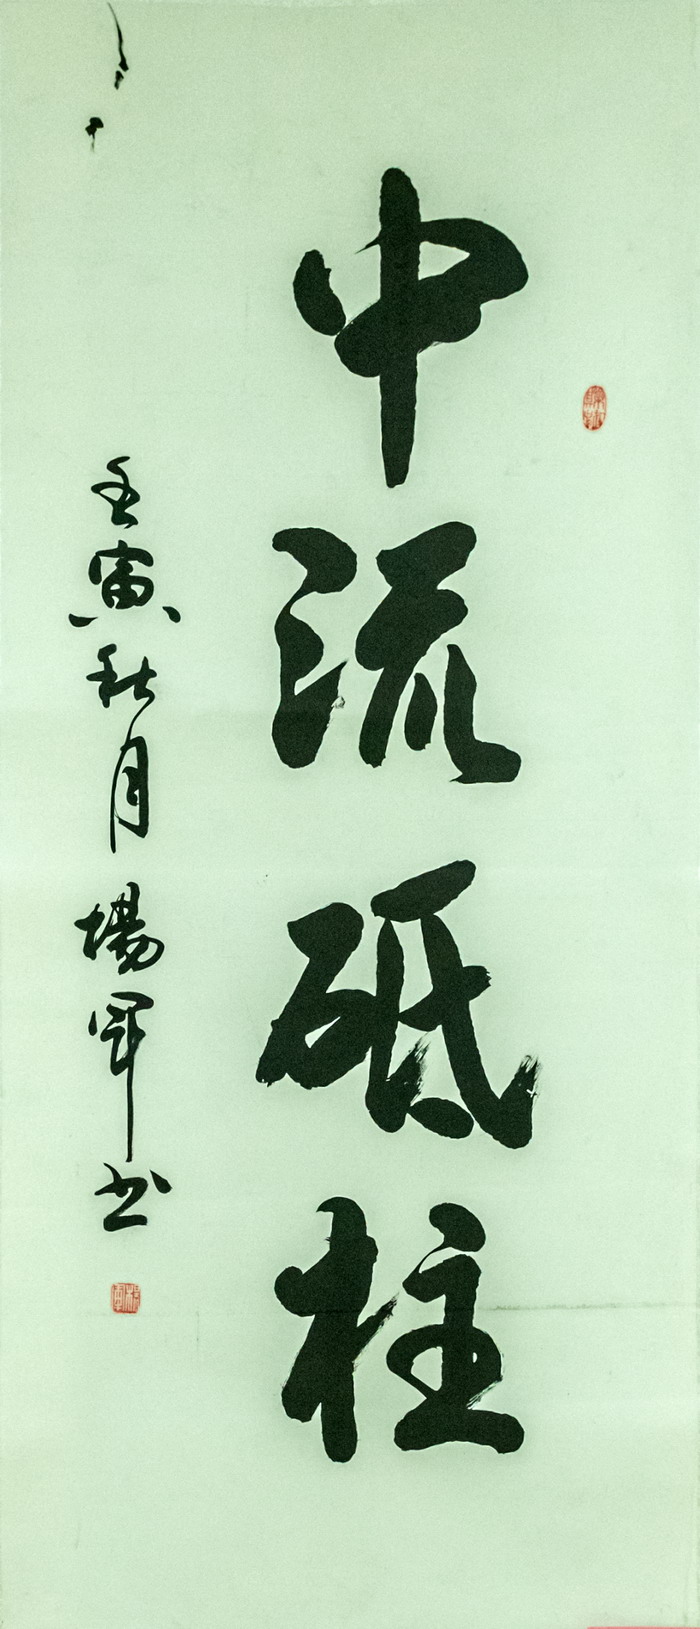 中流砥柱
壬寅秋月 楊軍书